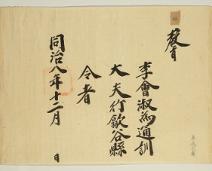 敎旨
李會淑爲通訓
大夫行歙谷縣
令者
同治八年十二月 日